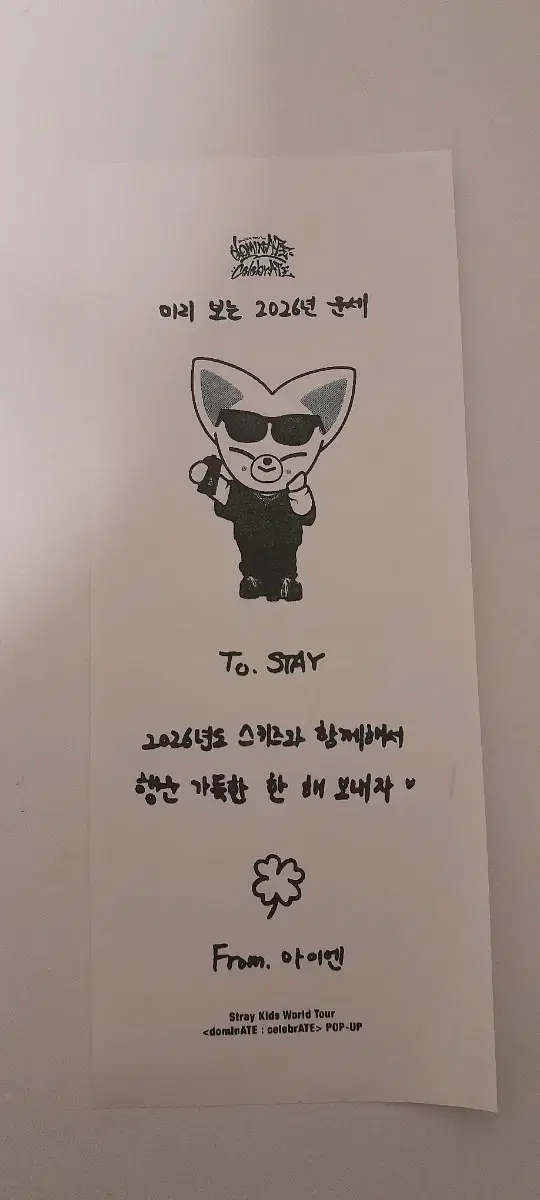 dominATE
celebrATE
미리 보는 2026년 운세
To. STAY
2026년도 스키즈와 함께해서
행운 가득한 한 해 보내자 ♥
From. 아이엔
Stray Kids World Tour
<dominATE : celebrATE> POP-UP